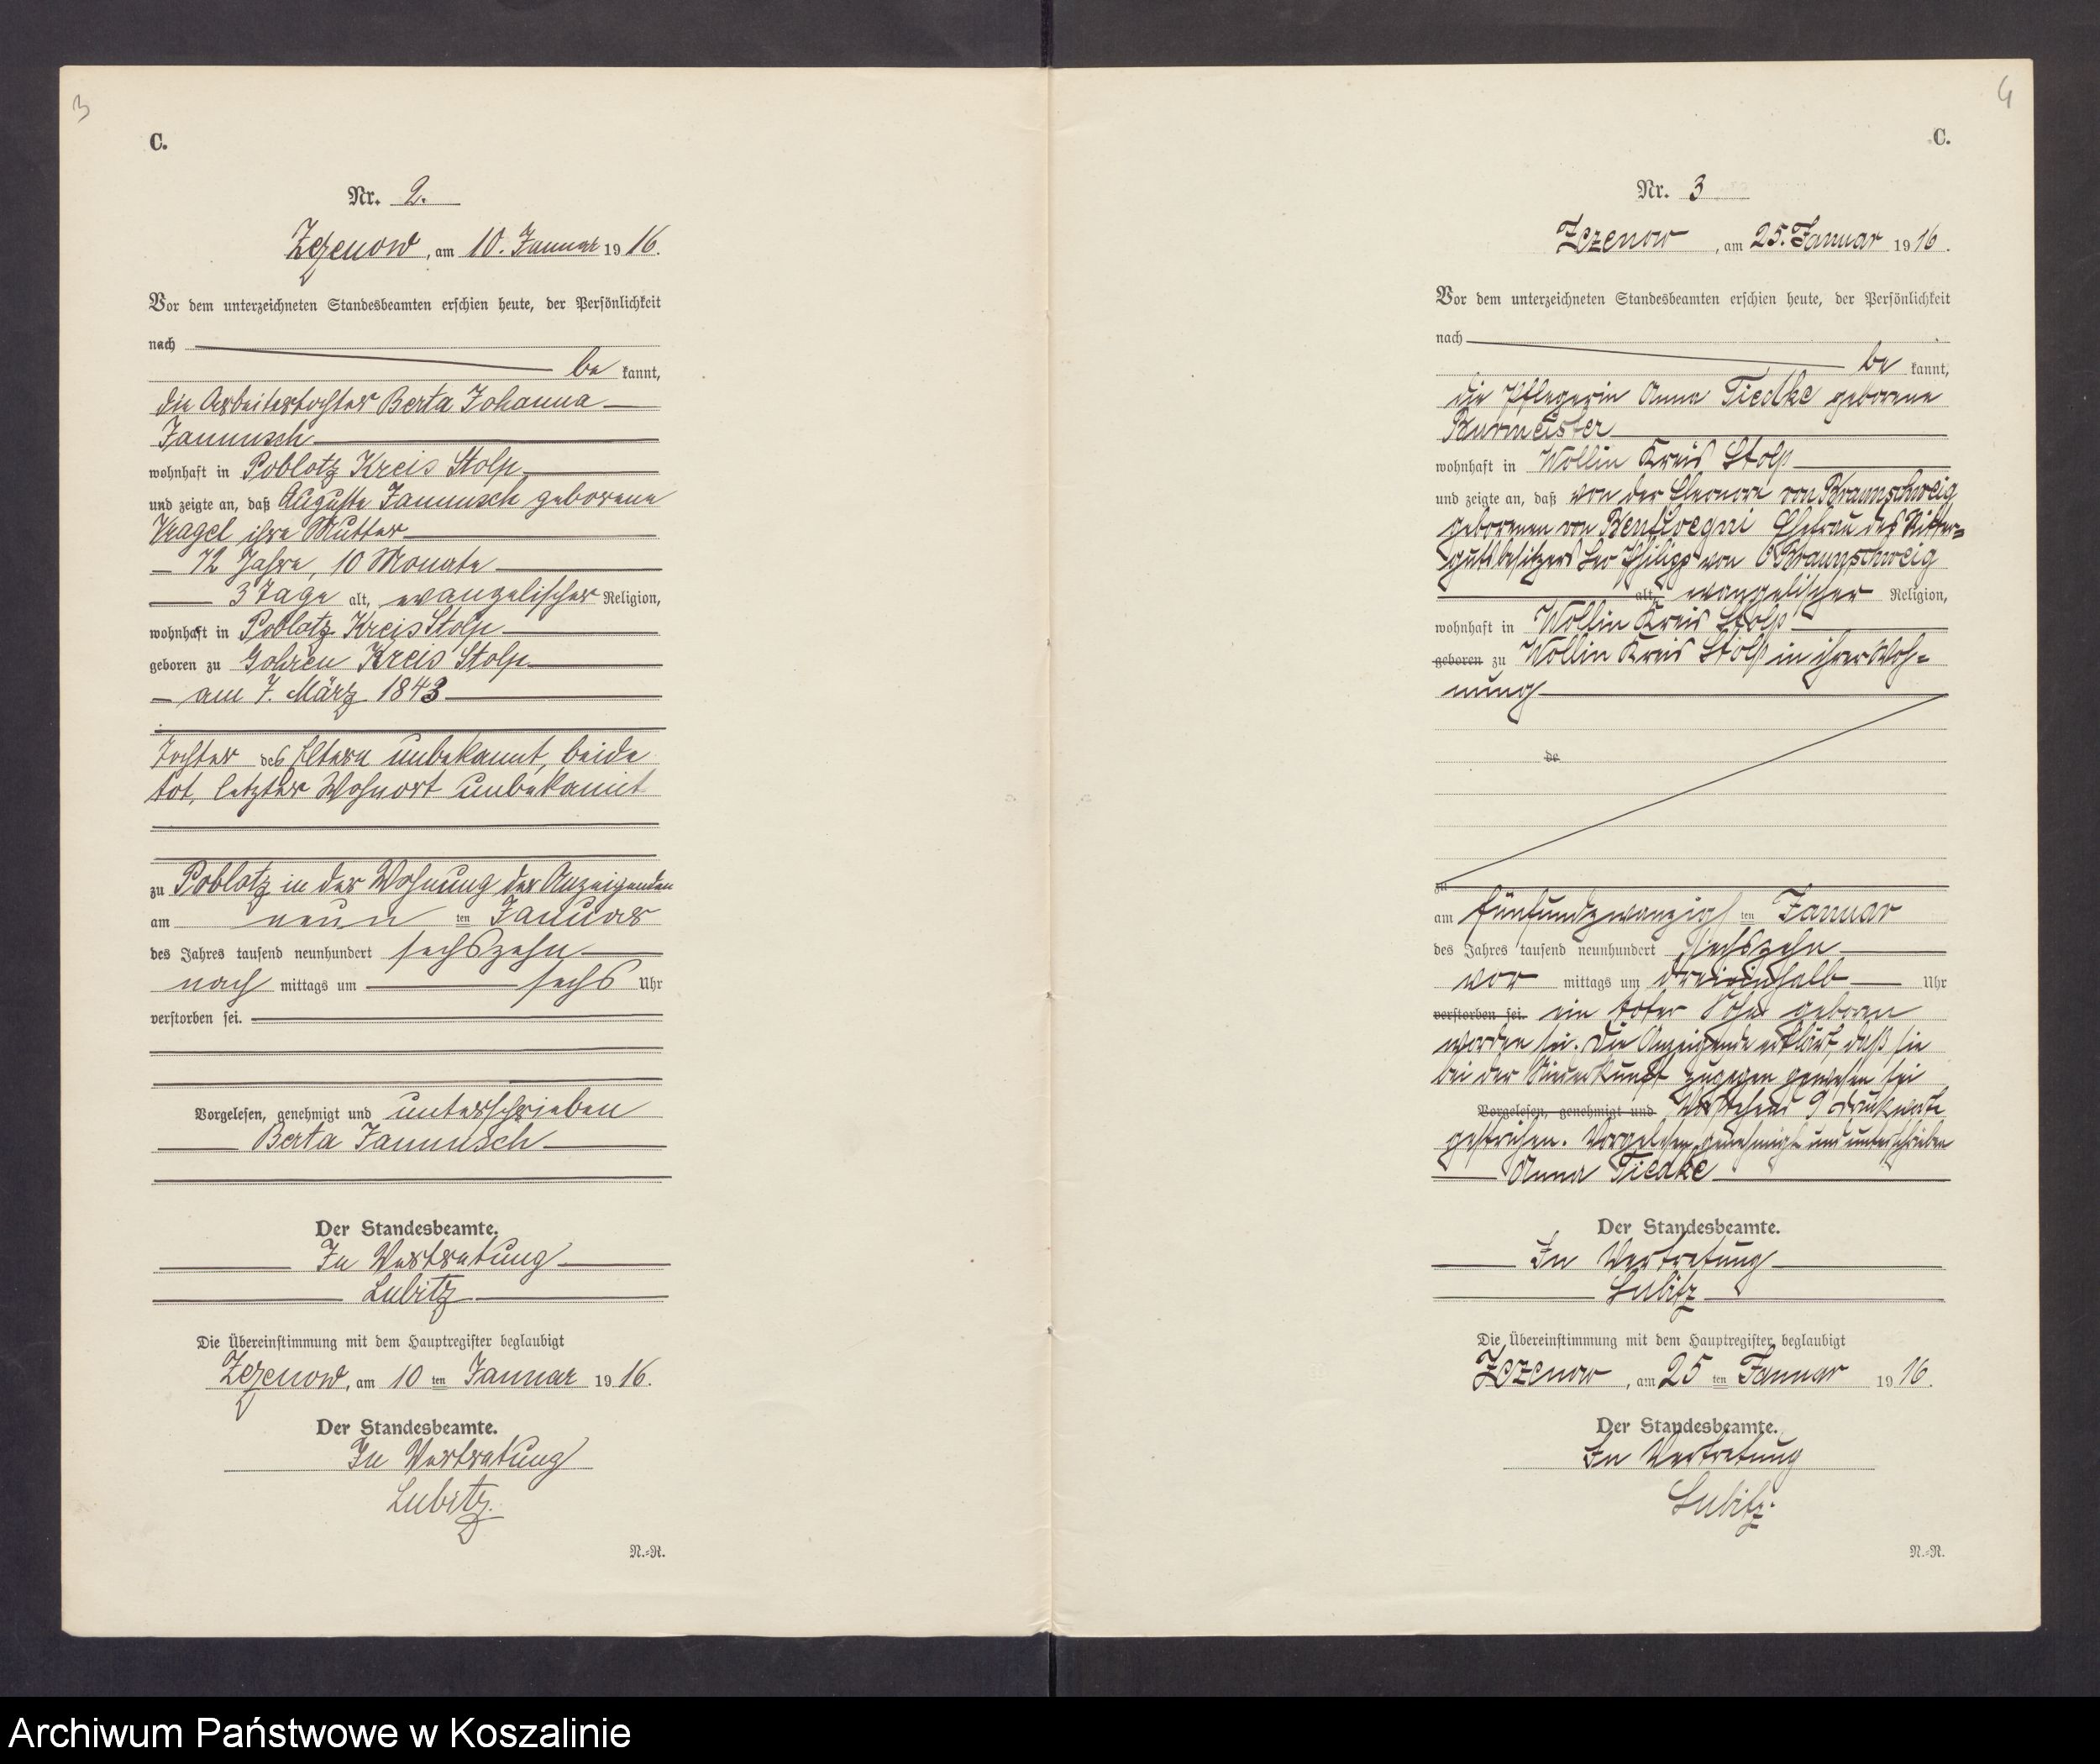 3
C.
Nr. 2.
Zezenow, am 10. Januar 1916.
Vor dem unterzeichneten Standesbeamten erschien heute, der Persönlichkeit
nach
bekannt,
die Arbeitertochter Berta Johanna
Jannusch
wohnhaft in Poblotz Kreis Stolp
und zeigte an, daß Auguste Jannusch geborene
Kragel ihre Mutter
72 Jahre, 10 Monate
3 Tage alt, evangelischer Religion,
wohnhaft in Poblotz Kreis Stolp
geboren zu Gohren Kreis Stolp
am 7. März 1843
Tochter der Eltern unbekannt, beide
tot, letzter Wohnort unbekannt
zu Poblotz in der Wohnung der Anzeigenden
am neunten Januar
des Jahres tausend neunhundert sechszehn
nachmittags um sechs Uhr
verstorben sei.
Vorgelesen, genehmigt und unterschrieben
Berta Jannusch
Der Standesbeamte.
In Vertretung
Lubitz
Die Übereinstimmung mit dem Hauptregister beglaubigt
Zezenow, am 10ten Januar 1916.
Der Standesbeamte.
In Vertretung
Lubitz.
N.=R.
4
C.
Nr. 3
Zezenow, am 25. Januar 1916.
Vor dem unterzeichneten Standesbeamten erschien heute, der Persönlichkeit
nach
bekannt,
die Pflegerin Anna Tiedke geborene
Burmeister
wohnhaft in Wollin Kreis Stolp
und zeigte an, daß von der Eleonore von Braunschweig
geborenen von Bentivegni Ehefrau des Ritter=
gutsbesitzers Leo Philipp von Braunschweig
alt, evangelischer Religion,
wohnhaft in Wollin Kreis Stolp
geboren zu Wollin Kreis Stolp in ihrer Woh=
nung
de
zu
am fünfundzwanzigsten Januar
des Jahres tausend neunhundert sechszehn
vormittags um dreieinhalb Uhr
verstorben sei. ein toter Sohn geboren
worden sei. Die Anzeigende erklärt, daß sie
bei der Niederkunft zugegen gewesen sei
Vorgelesen, genehmigt und Vorstehend 9 Druckworte
gestrichen. Vorgelesen, genehmigt und unterschrieben
Anna Tiedke
Der Standesbeamte.
In Vertretung
Lubitz
Die Übereinstimmung mit dem Hauptregister beglaubigt
Zezenow, am 25ten Januar 1916.
Der Standesbeamte.
In Vertretung
Lubitz.
N.=R.
Archiwum Państwowe w Koszalinie